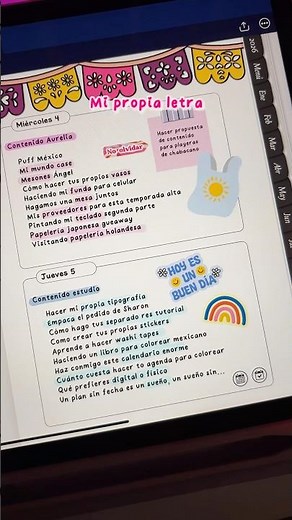 Mi propia letra
2026
Menú
Ene
Feb
Mar
Abr
May
Jun
Miércoles 4
Contenido Aurelia
No olvidar
Hacer propuesta
de contenido
para playeras
de chabacano
Puff México
Mi mundo case
Mesones Ángel
Cómo hacer tus propios vasos
Haciendo mi funda para celular
Hagamos una mesa juntos
Mis proveedores para esta temporada alta
Pintando mi teclado segunda parte
Papelería japonesa guveaway
Visitando papelería holandesa
Jueves 5
Contenido estudio
HOY ES
UN
BUEN DÍA
Hacer mi propia tipografía
Empaca el pedido de Sharon
Cómo hago tus separado res tutorial
Como crear tus propias stickers
Aprende a hacer washi tapes
Haciendo un libro para colorear mexicano
Haz conmigo este calendario enorme
Cuánto cuesta hacer to agenda para colorear
Qué prefieres digital o físico
Un plan sin fecha es un sueño, un sueño sin...